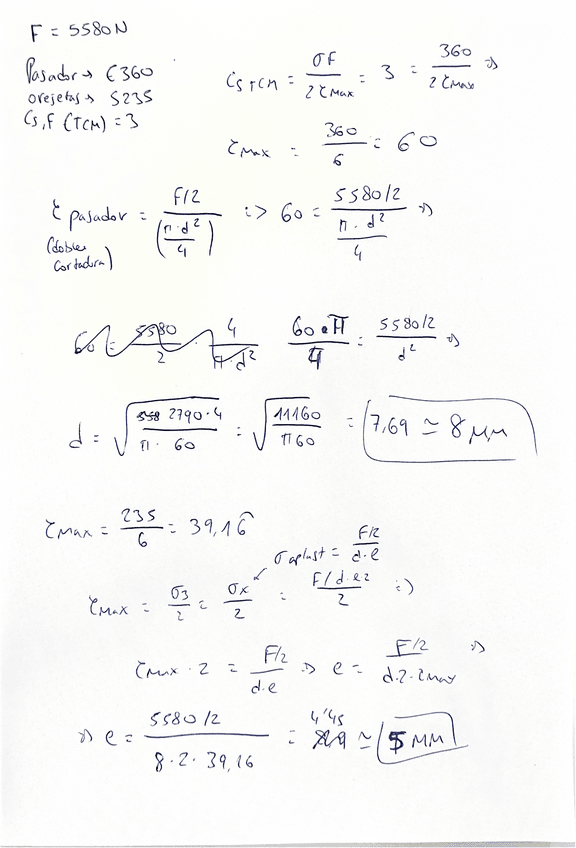 F = 5580N
Pasador → E360
orejetas → S235
Cs,F (TCM) = 3
Cs TCM = σF / 2 τMax = 3 = 360 / 2 τMax ⇒
τMax = 360 / 6 = 60
τ pasador = F/2 / (π · d² / 4) => 60 = 5580/2 / (π · d² / 4) ⇒
(doble cortadura)
60 = 5580 / 2 · 4 / π · d²    60 · π / 4 = 5580/2 / d² ⇒
d = √(558 2790 · 4 / π · 60) = √(11160 / π 60) = 7,69 ≃ 8 MM
τMax = 235 / 6 = 39,16
σ aplast = F/2 / d·e
τMax = σ3 / 2 = σx / 2 = F/d·e·2 / 2 =>
τMax · 2 = F/2 / d·e ⇒ e = F/2 / d·2·τMax ⇒
⇒ e = 5580/2 / 8 · 2 · 39,16 = 4'45 ≃ 5 MM